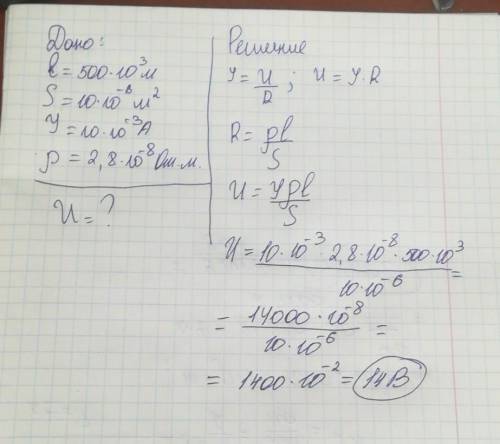 Дано:
l = 500·10³ м
S = 10·10⁻⁶ м²
I = 10·10⁻³ А
ρ = 2,8·10⁻⁸ Ом·м.
U = ?
Решение
I = U/R ; U = I·R
R = ρl/S
U = Iρl/S
U = 10·10⁻³·2,8·10⁻⁸·500·10³ / 10·10⁻⁶ =
= 14000·10⁻⁸ / 10·10⁻⁶ =
= 1400·10⁻² = 14В